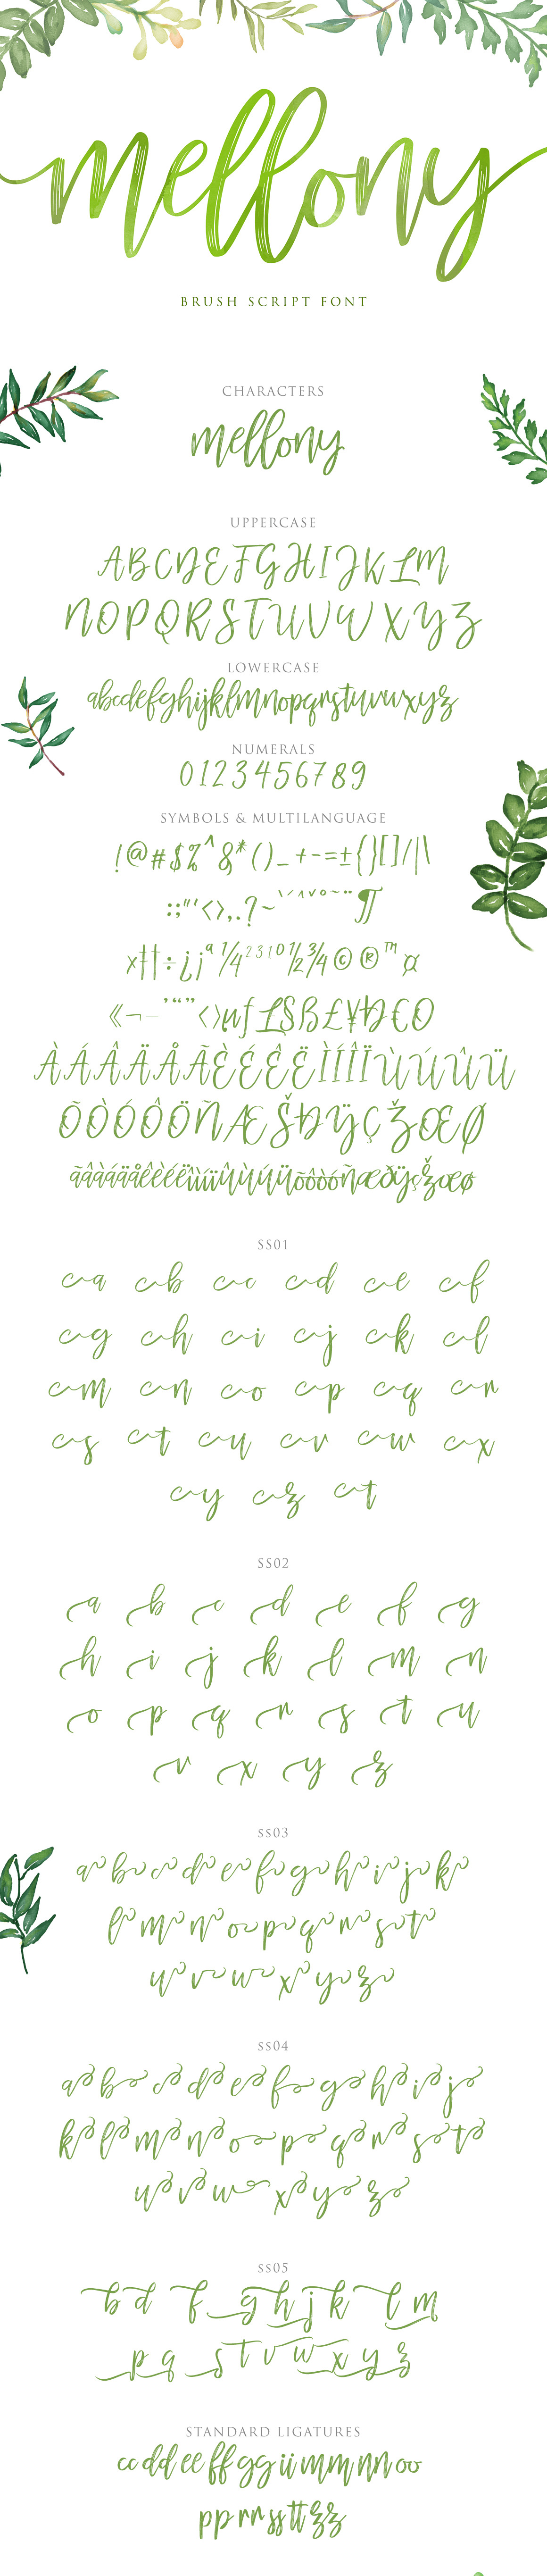 mellony
BRUSH SCRIPT FONT
CHARACTERS
mellony
UPPERCASE
ABCDEFGHIJKLM
NOPQRSTUVWXYZ
LOWERCASE
abcdefghijklmnopqrstuvwxyz
NUMERALS
0123456789
SYMBOLS & MULTILANGUAGE
!@#$%^&*()_+-=±{}[]/|\
:;"'<>,.?~`´^ˇ°~¨¶
×‡†÷¿¡ª¼²³¹º½¾©®™¤
«¬—’“”‹›µƒ£§ß£¥Ð€O
ÀÁÂÄÅÃÈÉÊËÌÍÎÏÙÚÛÜ
ÕÒÓÔÖÑÆŠÐŸÇŽŒØ
ãâàáäåêèéëìíîïûùúüõôòóñæðÿçžœø
SS01
a b c d e f
g h i j k l
m n o p q r
s t u v w x
y z t
SS02
a b c d e f g
h i j k l m n
o p q r s t u
v x y z
SS03
a b c d e f g h i j k
l m n o p q r s t
u v w x y z
SS04
a b c d e f g h i j
k l m n o p q r s t
u v w x y z
SS05
b d f g h j k l m
p q s t v w x y z
STANDARD LIGATURES
cc dd ee ff gg ii mm nn oo
pp rr ss tt zz